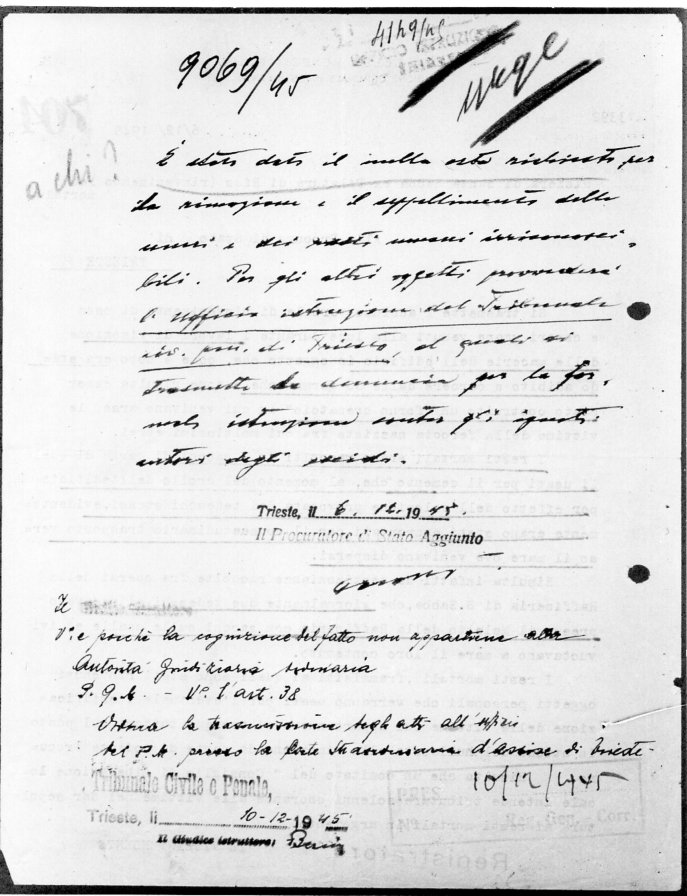 9069/45
4149/45
urge
a chi?
È stato dato il nulla osta richiesto per
la rimozione e il seppellimento delle
ceneri e dei resti umani irriconosci-
bili. Per gli altri oggetti provvederà
l'Ufficio istruzione del Tribunale
civ. pen. di Trieste, al quale si
trasmette la denuncia per la for-
male istruzione contro gli ignoti
autori degli eccidi.
Trieste, li 6. 12. 1945.
Il Procuratore di Stato Aggiunto
Il
V° e poichè la cognizione del fatto non appartiene alla
Autorità Giudiziaria ordinaria
P. Q. M. - V° l'art. 38
Ordina la trasmissione degli atti all'ufficio
del P.M. presso la Corte Straordinaria d'assise di Trieste.
10/12/1945
Tribunale Civile e Penale,
Trieste, li 10-12-1945
Il Giudice istruttore: